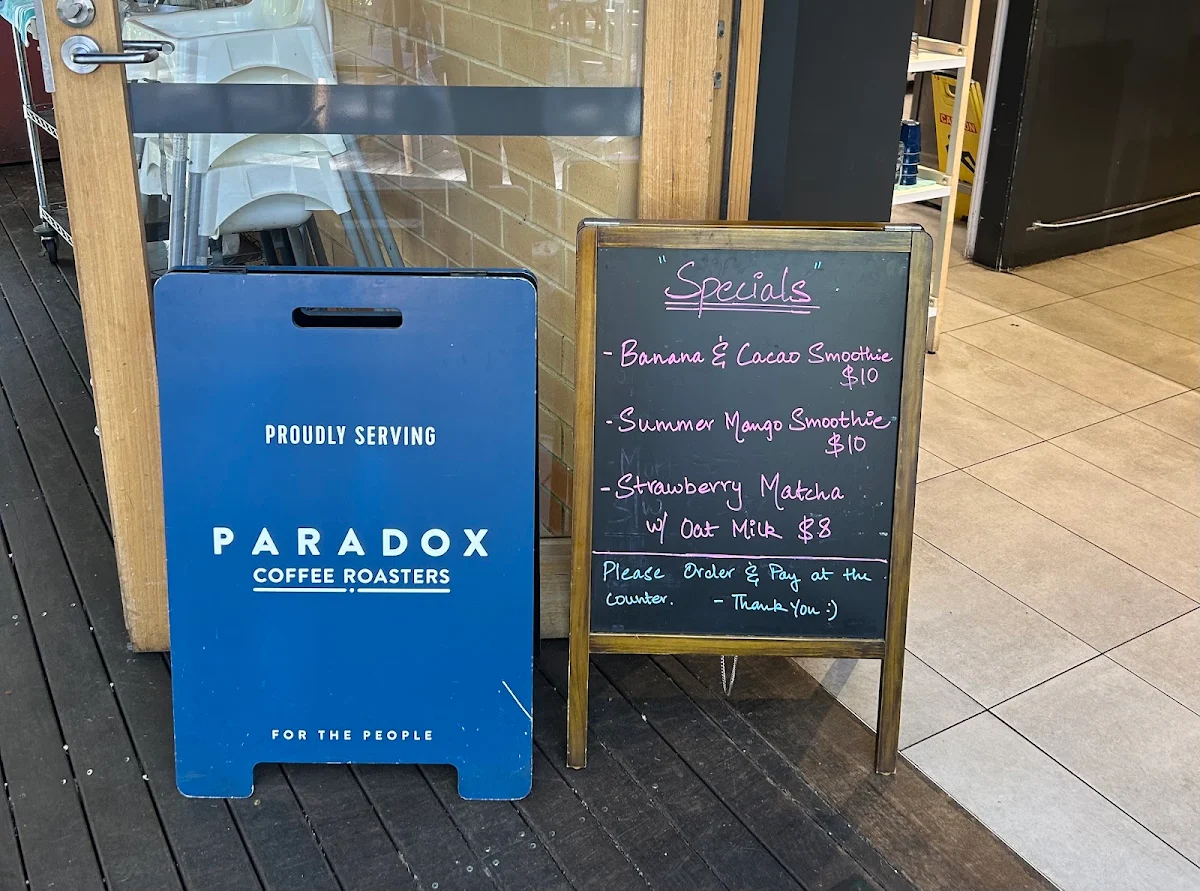 PROUDLY SERVING
PARADOX
COFFEE ROASTERS
FOR THE PEOPLE
"Specials"
- Banana & Cacao Smoothie
$10
- Summer Mango Smoothie
$10
- Strawberry Matcha
w/ Oat Milk $8
Please Order & Pay at the
Counter. - Thank You :)